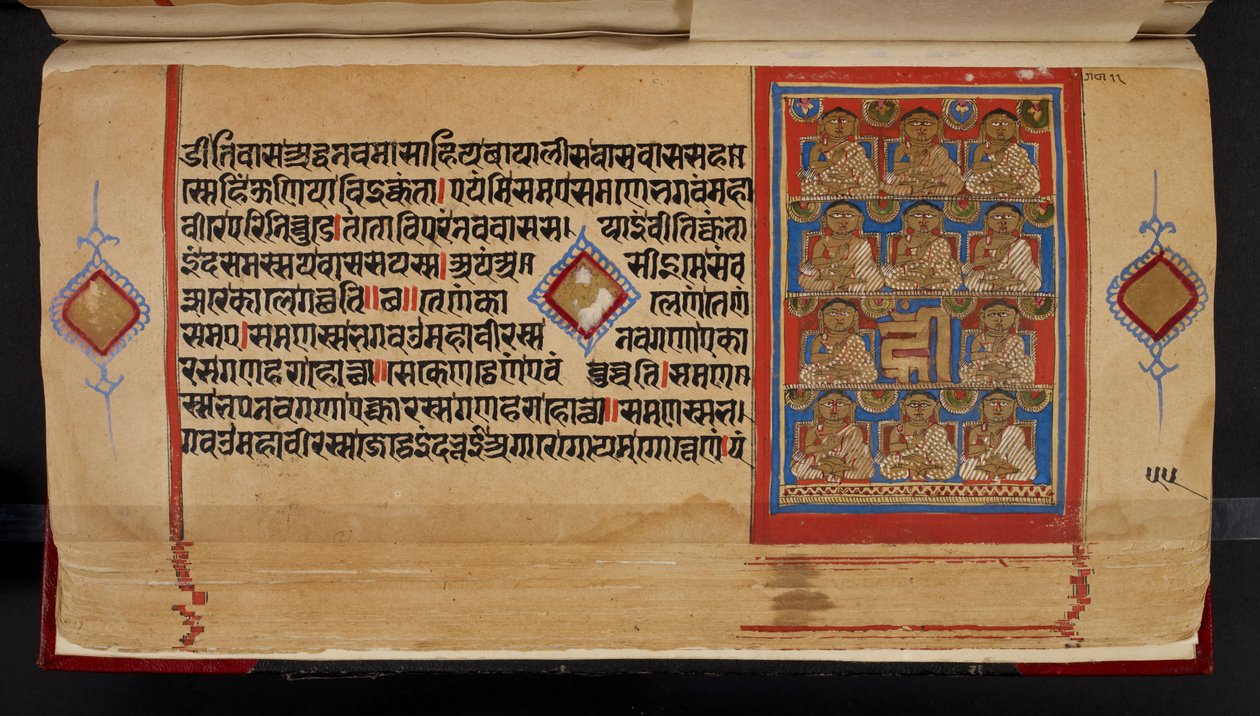 डीतिवासअद्धनवमासाहियबायालीसवासवाससहस
स्सेहिंऊणियाविइक्कंता।एयंमिसमएसमणेभगवंमहा
वीरेपरिनिव्वुडे।ततोविपरंनववासस। याइंवीतिक्कंता
इंदसमस्सयवाससयस्स।अयंअसीइमेसंव
च्छरेकालेगच्छति॥छ॥तेणंका लेणंतेणं
समए।समणस्सभगवओमहावीरस्स नवगणाएका
रसगणहराहोच्छा॥सेकेणठेणंएवं वुच्चति।समणस
स्सभ नवगणाएक्कारसगणहराहोच्छा॥समणस्सभ।
गवओमहावीरस्सजेठेइंदभूईअणगारेगोयमेगोत्तेणं।पं
गण ११
५५